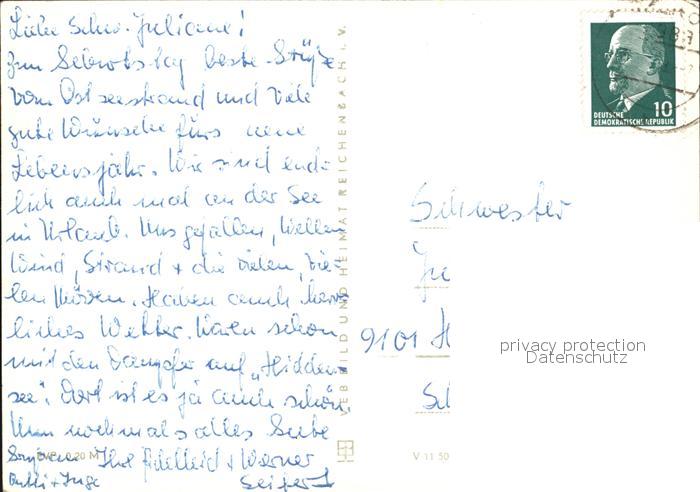 Liebe Schw. Juliane!
Zum Geburtstag beste Grüße
vom Ostseestrand und viele
gute Wünsche fürs neue
Lebensjahr. Wir sind end-
lich auch mal an der See
in Urlaub. Uns gefallen, Wellen
Wind, Strand + die vielen, vie-
len Möven. Haben auch herr-
liches Wetter. Waren schon
mit dem Dampfer auf „Hidden-
see". Dort ist es ja auch schön.
Nun nochmals alles Gute
Ihre + Werner
+ Inge Seifert
EVP 0,20 M
VEB BILD UND HEIMAT REICHENBACH i. V.
V 11 50
DEUTSCHE
DEMOKRATISCHE REPUBLIK
10
Schwester
Ju
9101 H
Sch
privacy protection
Datenschutz